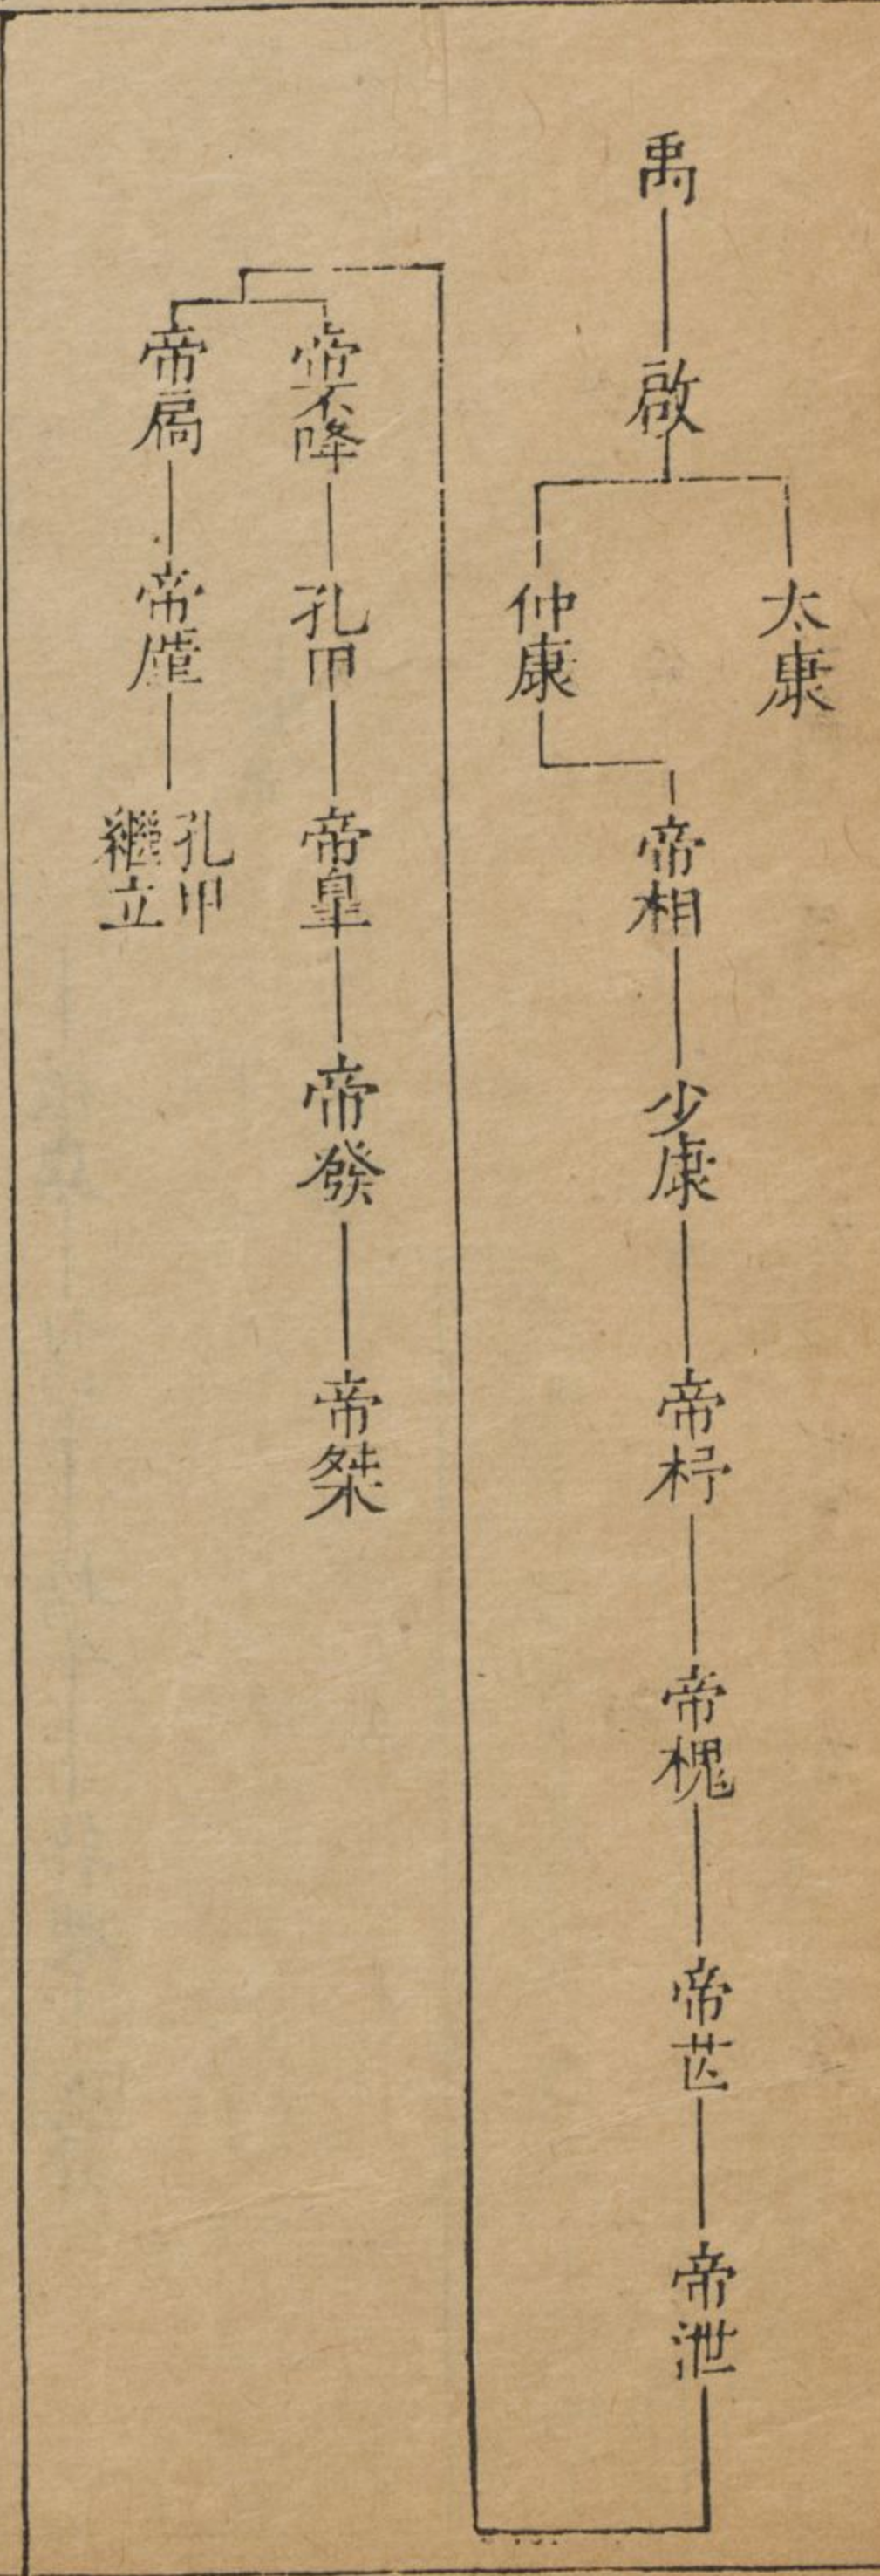 禹
啟
太康
仲康
帝相
少康
帝杼
帝槐
帝芒
帝泄
帝不降
孔甲
帝皐
帝發
帝桀
帝扃
帝廑
孔甲
繼立